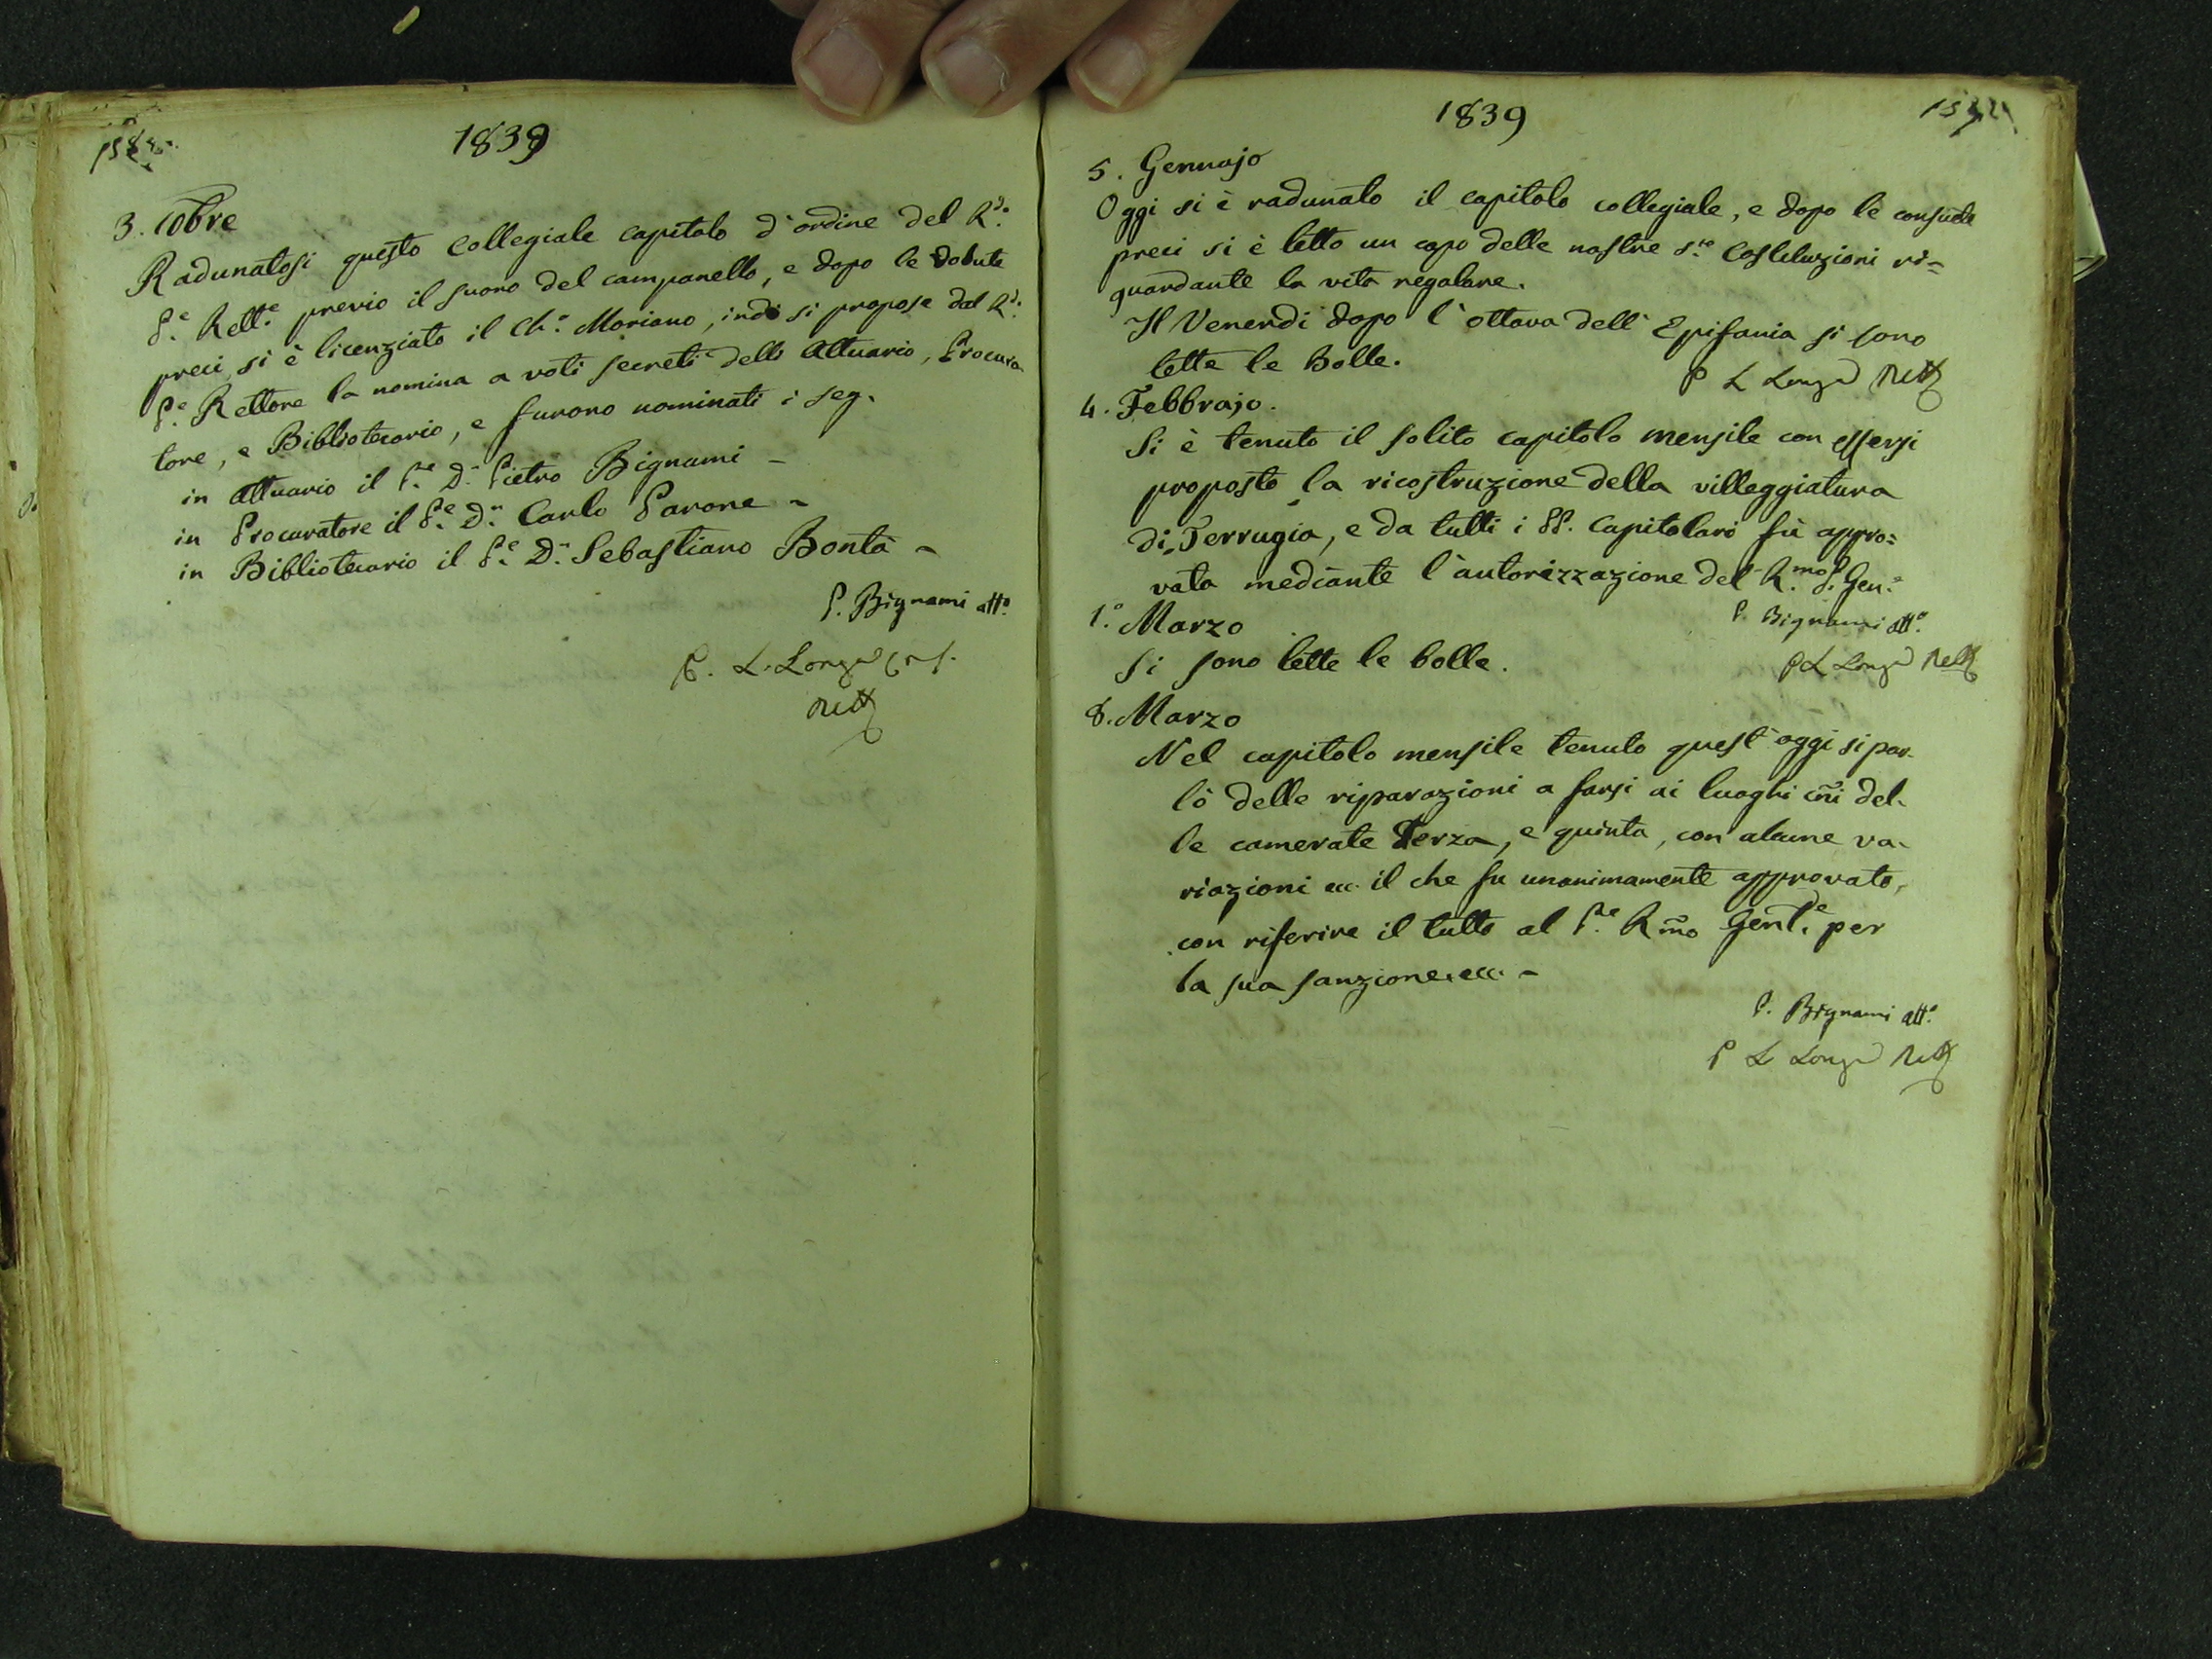 1839
3. 10bre
Radunatosi questo Collegiale capitolo d'ordine del R.do
P.e Rett.e previo il suono del campanello, e dopo le dovute
preci, si è licenziato il Ch.o Moriano, indi si propose dal R.do
P.e Rettore la nomina a voti secreti dello Attuario, Procura
tore, e Bibliotecario, e furono nominati i seg.
in Attuario il P.e D. Pietro Bignami -
in Procuratore il P.e D.n Carlo Parone -
in Bibliotecario il P.e D. Sebastiano Bontà -
P. Bignami att.o
P. L. Longa
Rett
1839
5. Gennajo
Oggi si è radunato il capitolo collegiale, e dopo le consuete
preci si è letto un capo delle nostre S.te Costituzioni ri=
guardante la vita regolare.
Il Venerdì dopo l'ottava dell'Epifania si sono
lette le Bolle.
P L Longa Rett
4. Febbrajo.
Si è tenuto il solito capitolo mensile con essersi
proposto la ricostruzione della villeggiatura
di Terrugia, e da tutti i PP. Capitolari fù appro=
vata mediante l'autorizzazione del R.mo P. Gen.e
P. Bignami att.o
1.o Marzo
Si sono lette le bolle.
P L Longa Rett
8. Marzo
Nel capitolo mensile tenuto quest'oggi si par-
lò delle riparazioni a farsi ai luoghi cñi del-
le camerate Terza, e quinta, con alcune va-
riazioni ecc. il che fu unanimamente approvato,
con riferire il tutto al P.re Rm̃o Gen̄l.e per
la sua sanzione. ecc. -
P. Bignami att.o
P L Longa Rett